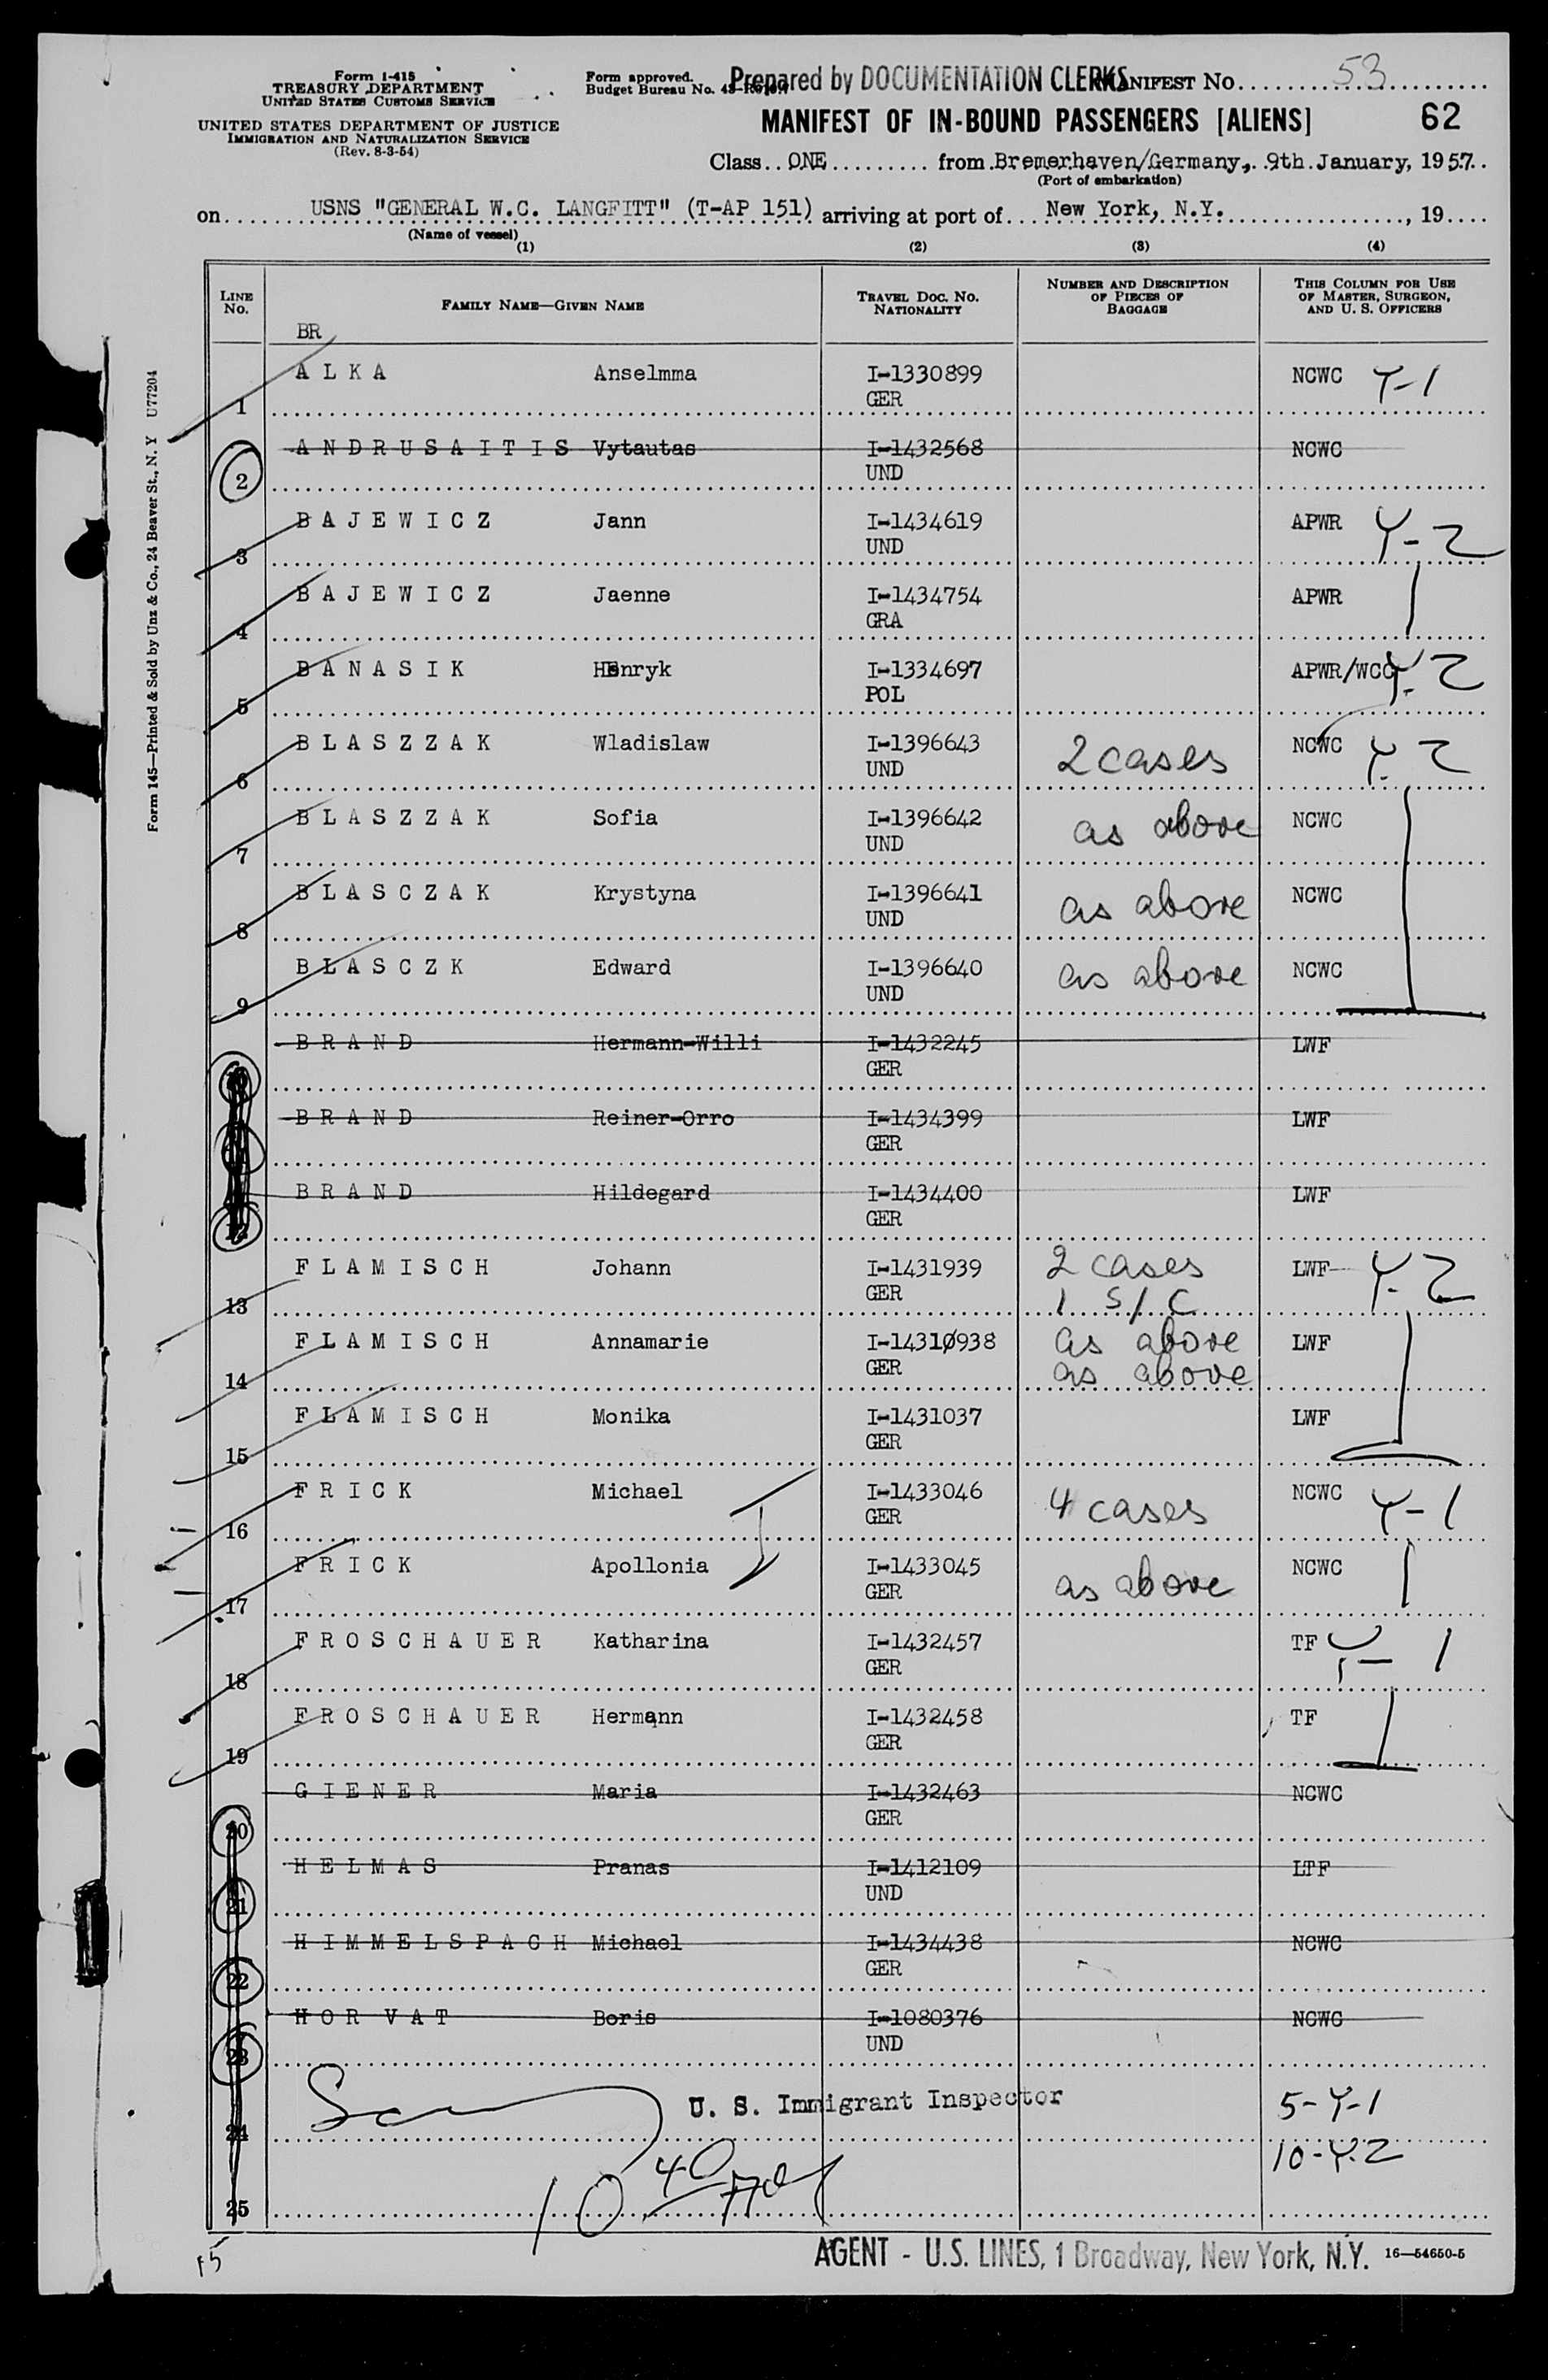 Form I-415
TREASURY DEPARTMENT
UNITED STATES CUSTOMS SERVICE
UNITED STATES DEPARTMENT OF JUSTICE
IMMIGRATION AND NATURALIZATION SERVICE
(Rev. 8-3-54)
Form approved.
Budget Bureau No. 43-
Prepared by DOCUMENTATION CLERKS
MANIFEST No. 53
MANIFEST OF IN-BOUND PASSENGERS [ALIENS] 62
Class ONE from Bremerhaven/Germany, 9th January, 1957
(Port of embarkation)
on USNS "GENERAL W.C. LANGFITT" (T-AP 151) arriving at port of New York, N.Y. , 19
(Name of vessel)
(1) (2) (3) (4)
LINE No. FAMILY NAME—GIVEN NAME TRAVEL DOC. NO. NATIONALITY NUMBER AND DESCRIPTION OF PIECES OF BAGGAGE THIS COLUMN FOR USE OF MASTER, SURGEON, AND U. S. OFFICERS
BR
1 ALKA Anselmma I-1330899 NCWC Y-1
GER
2 ANDRUSAITIS Vytautas I-1432568 NCWC
UND
3 BAJEWICZ Jann I-1434619 APWR Y-2
UND
4 BAJEWICZ Jaenne I-1434754 APWR
GRA
5 BANASIK Henryk I-1334697 APWR/WCC Y-2
POL
6 BLASZZAK Wladislaw I-1396643 2 cases NCWC Y-2
UND
7 BLASZZAK Sofia I-1396642 as above NCWC
UND
8 BLASCZAK Krystyna I-1396641 as above NCWC
UND
9 BLASCZK Edward I-1396640 as above NCWC
UND
10 BRAND Hermann-Willi I-1432245 LWF
GER
11 BRAND Reiner-Orro I-1434399 LWF
GER
12 BRAND Hildegard I-1434400 LWF
GER
13 FLAMISCH Johann I-1431939 2 cases LWF Y-2
GER 1 S/C
14 FLAMISCH Annamarie I-14310938 as above LWF
GER as above
15 FLAMISCH Monika I-1431037 LWF
GER
16 FRICK Michael I-1433046 4 cases NCWC Y-1
GER
17 FRICK Apollonia I-1433045 as above NCWC
GER
18 FROSCHAUER Katharina I-1432457 TF Y-1
GER
19 FROSCHAUER Hermann I-1432458 TF
GER
20 GIENER Maria I-1432463 NCWC
GER
21 HELMAS Pranas I-1412109 LTF
UND
22 HIMMELSPACH Michael I-1434438 NCWC
GER
23 HOR VAT Boris I-1080376 NCWC
UND
U. S. Immigrant Inspector 5-Y-1
24
10-Y-2
10 40
25
15
AGENT - U.S. LINES, 1 Broadway, New York, N.Y. 16—54650-5
Form 145—Printed & Sold by Unz & Co., 24 Beaver St., N. Y U77204